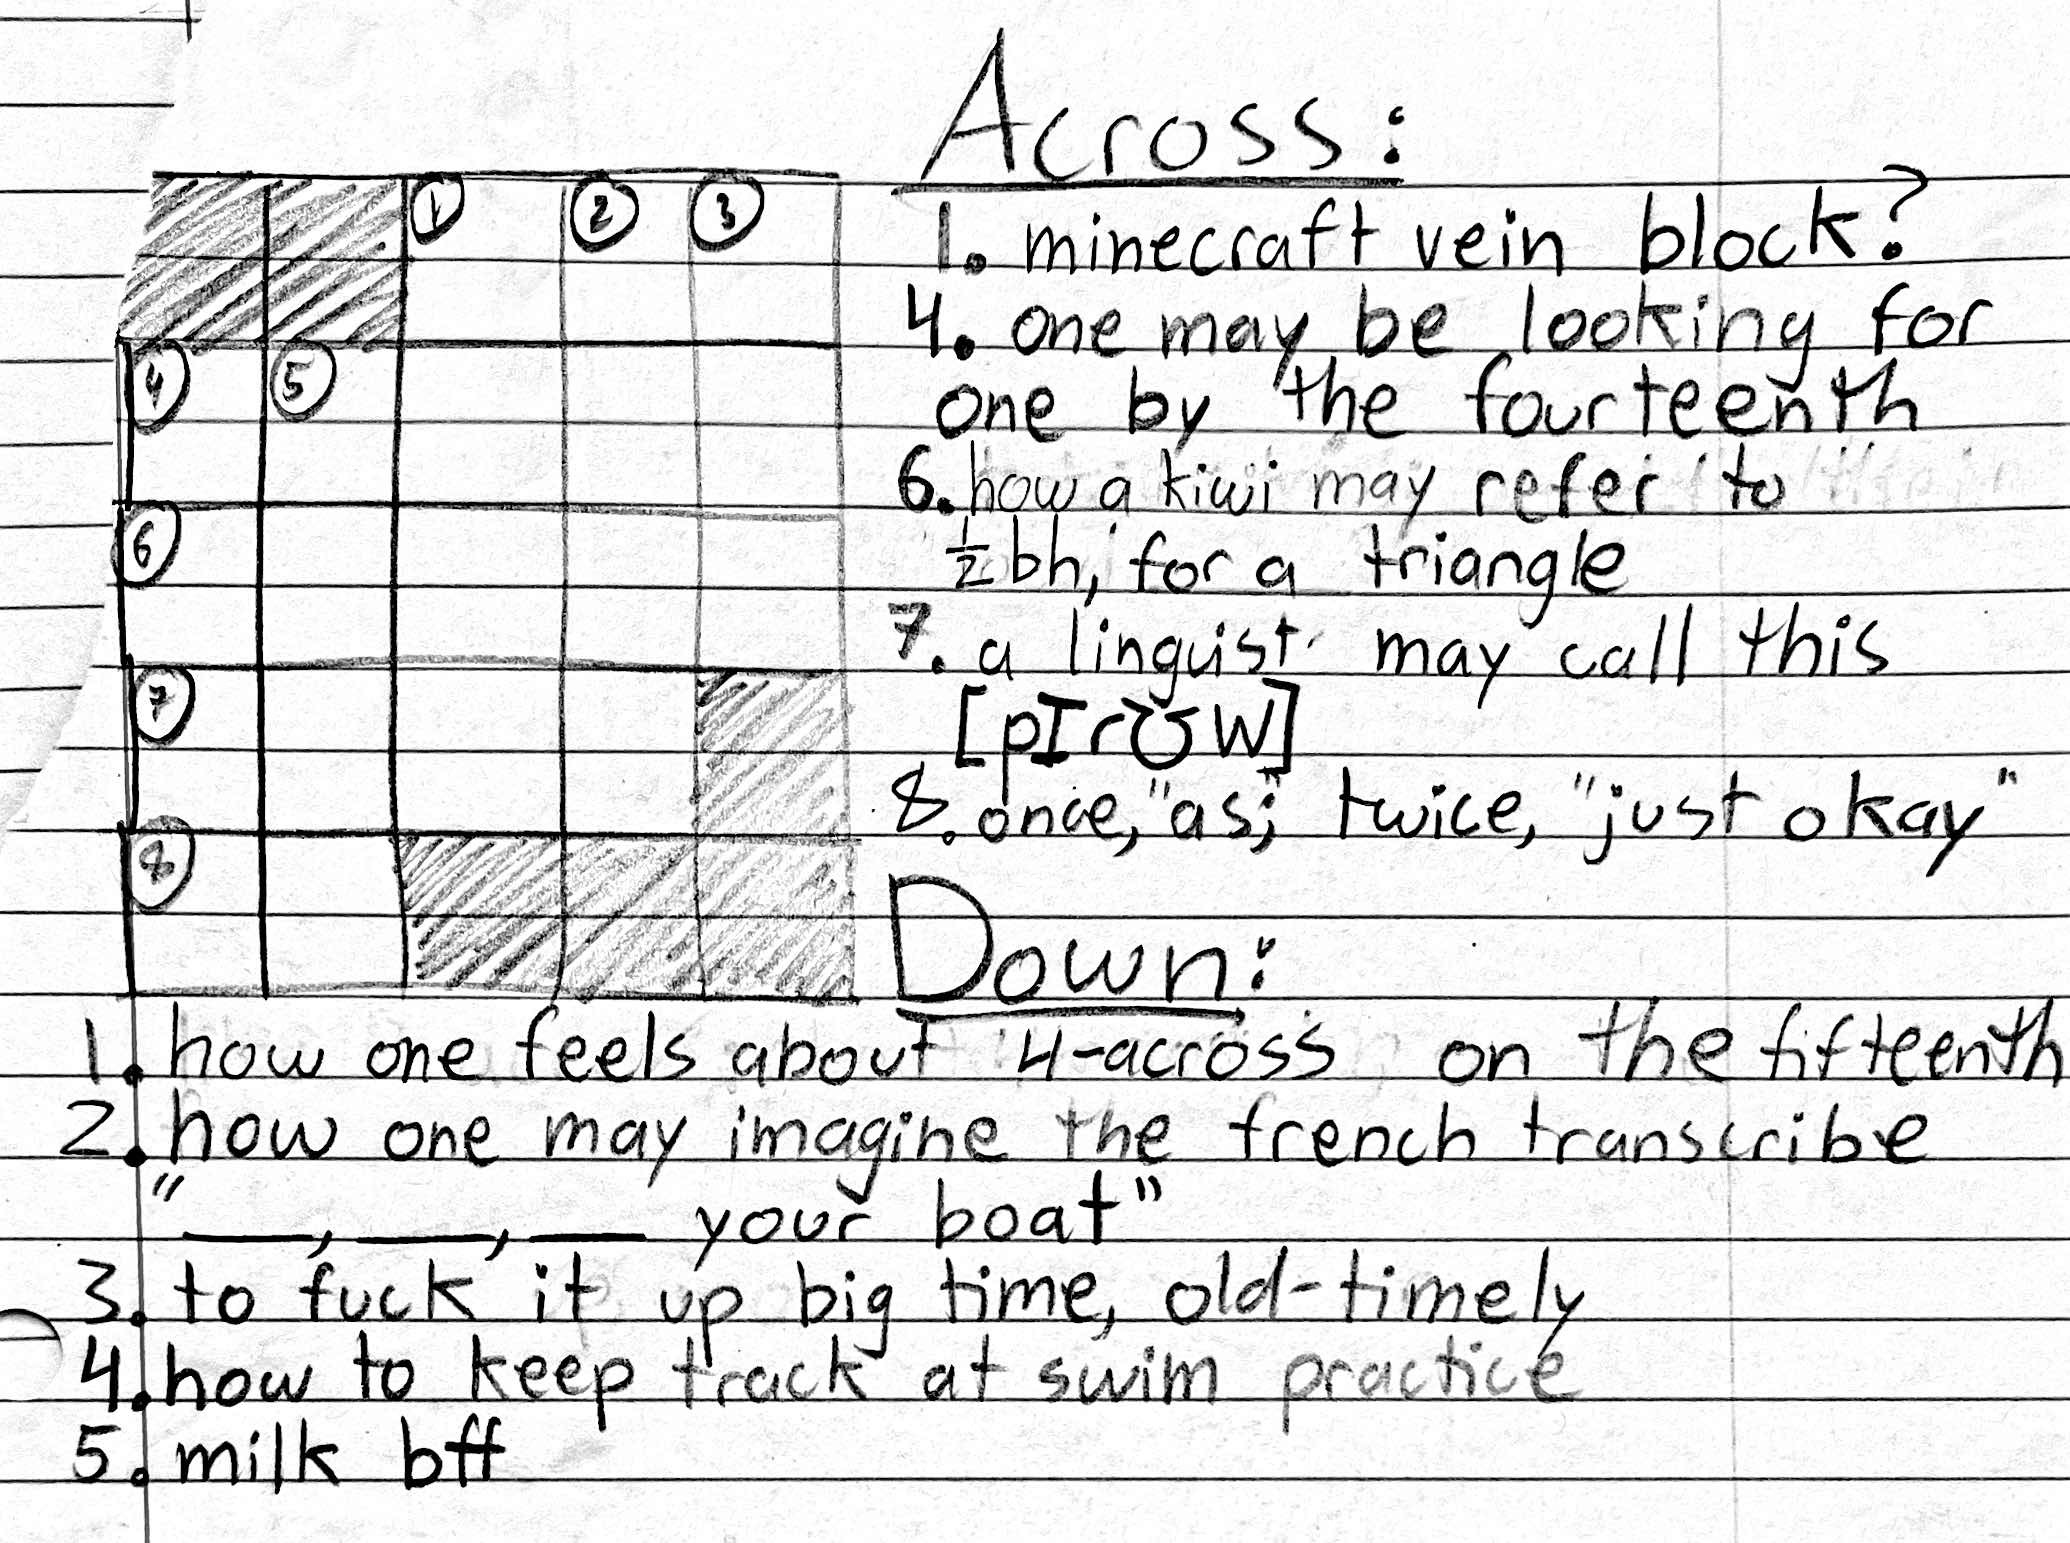 Across:
① ② ③
1. minecraft vein block?
4. one may be looking for
④ ⑤
one by the fourteenth
6. how a kiwi may refer to
⑥
½bh, for a triangle
7. a linguist may call this
⑦
[pIrʊw]
8. once, "as"; twice, "just okay"
⑧
Down:
1. how one feels about 4-across on the fifteenth
2. how one may imagine the french transcribe
"___, ___, ___ your boat"
3. to fuck it up big time, old-timely
4. how to keep track at swim practice
5. milk bff